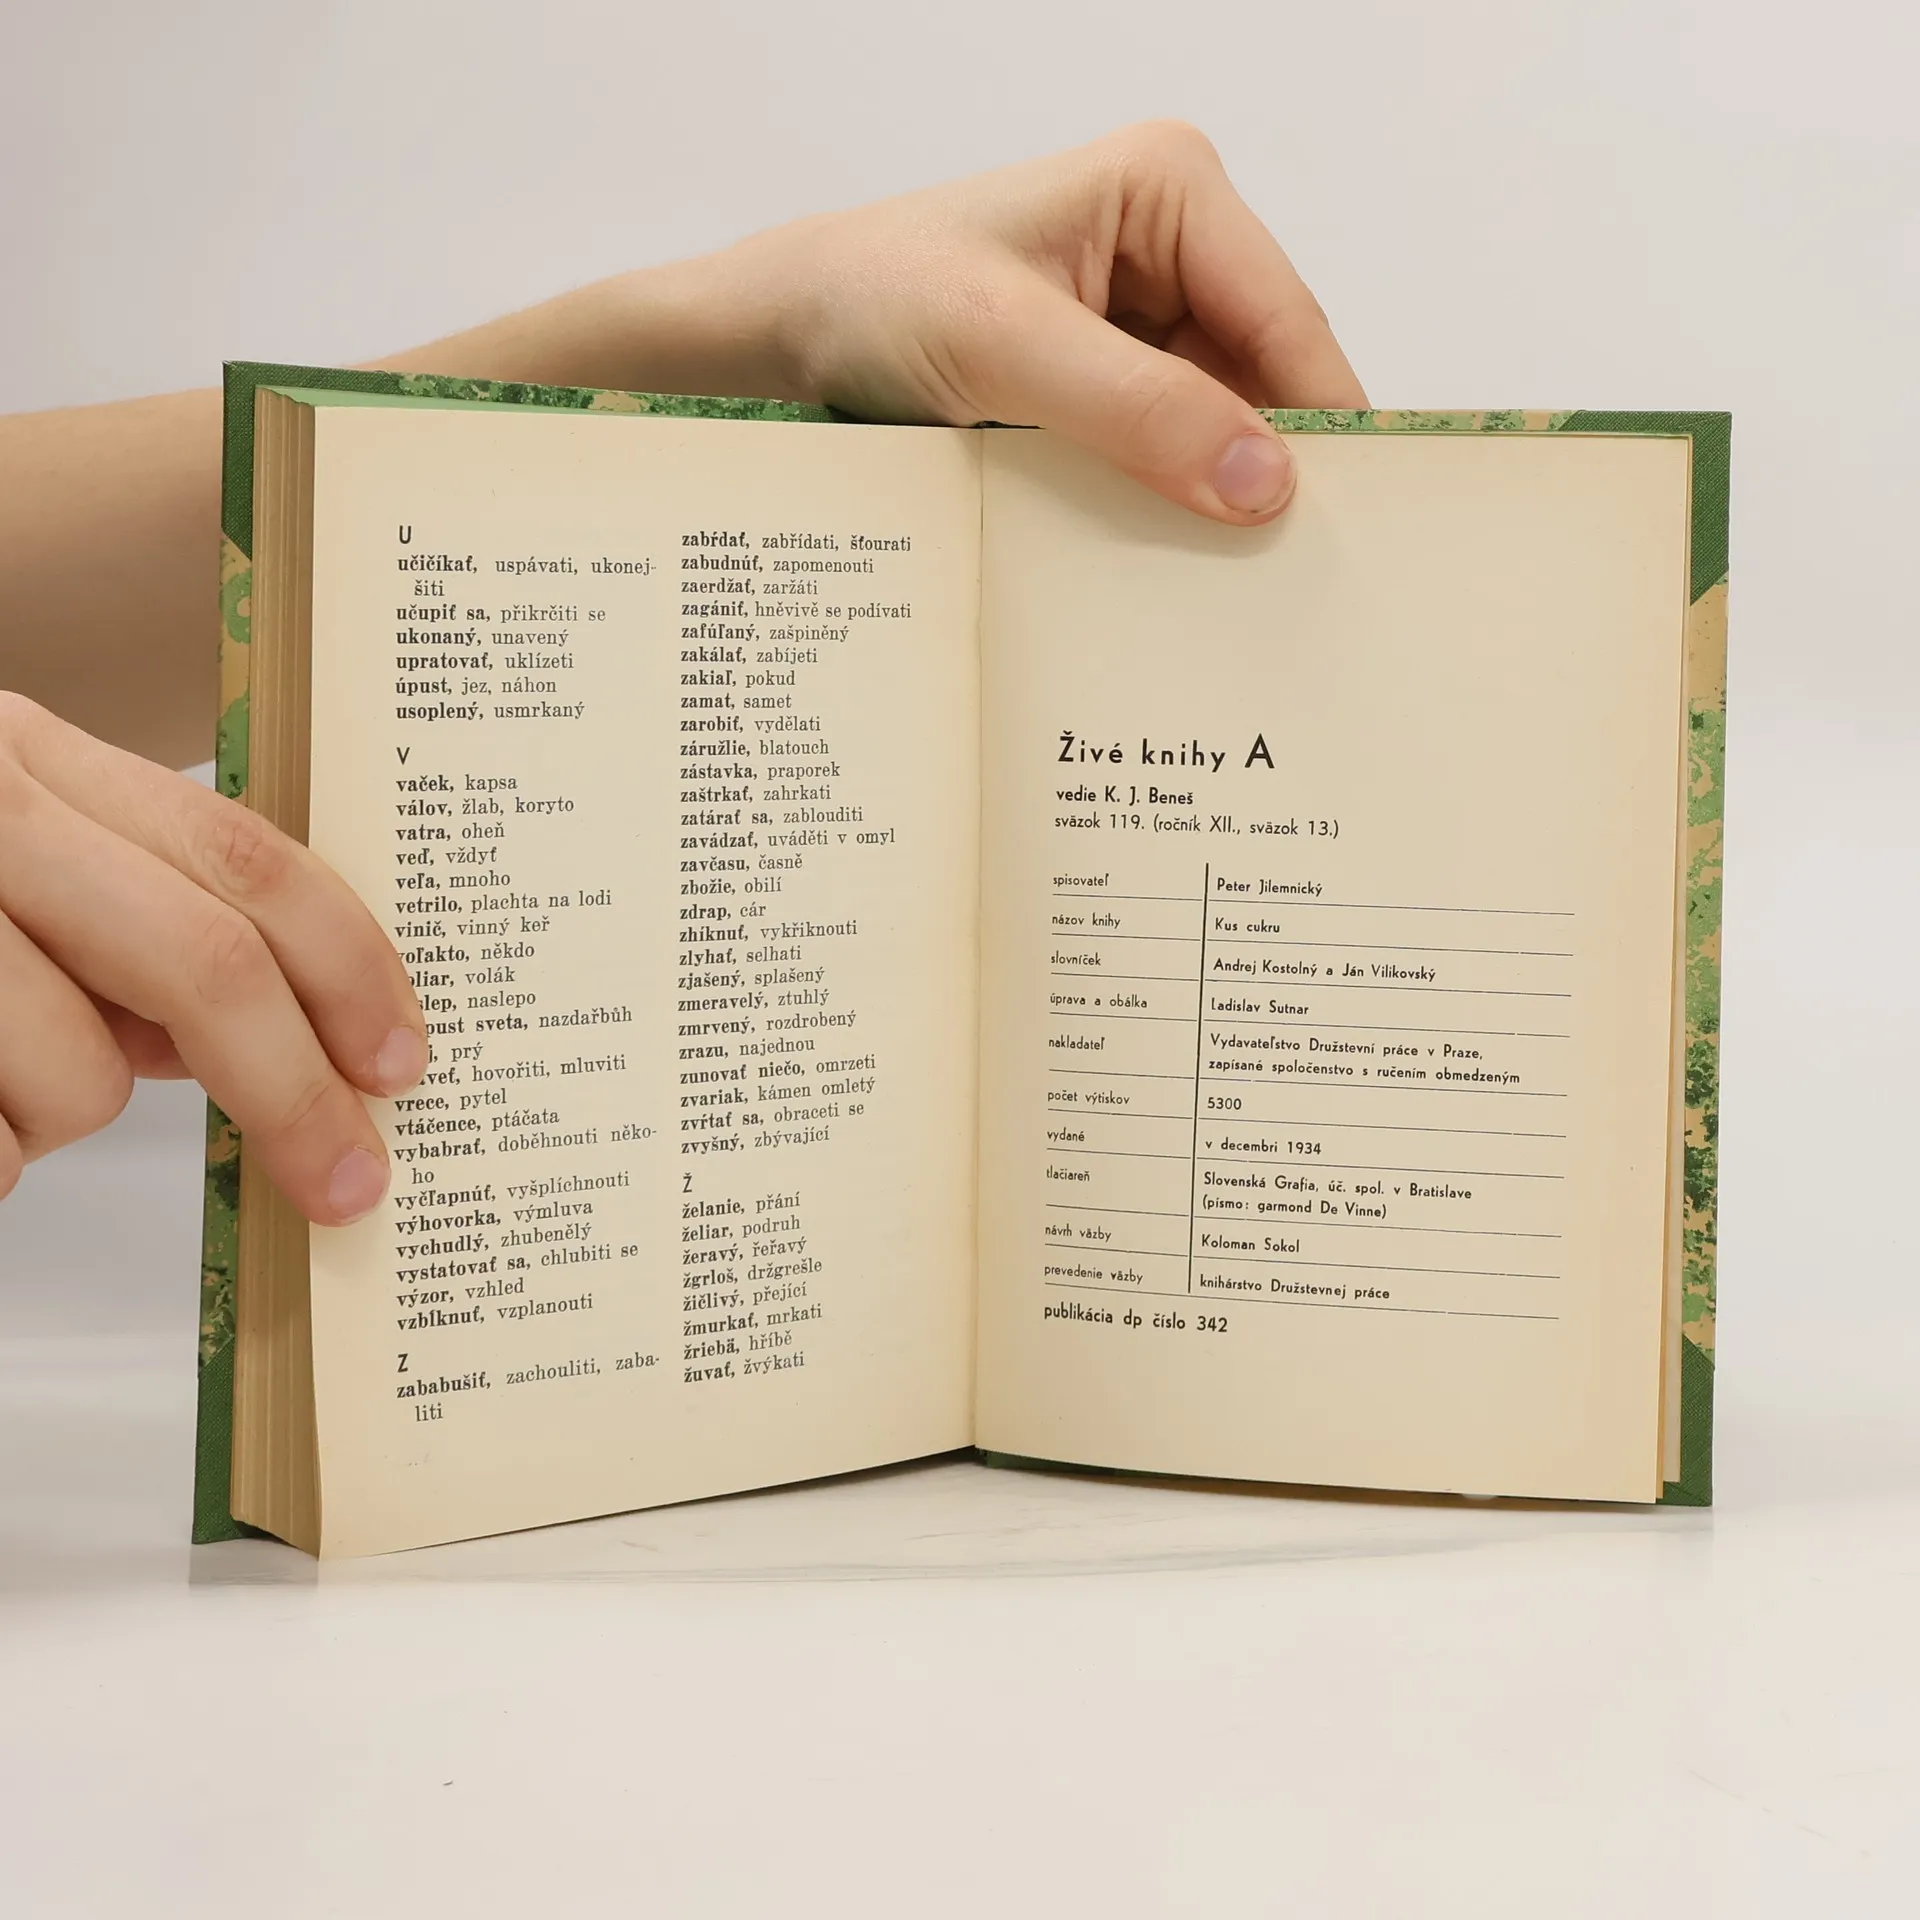 U
učičíkať, uspávati, ukonej-
šiti
učupiť sa, přikrčiti se
ukonaný, unavený
upratovať, uklízeti
úpust, jez, náhon
usoplený, usmrkaný
V
vaček, kapsa
válov, žlab, koryto
vatra, oheň
veď, vždyť
veľa, mnoho
vetrilo, plachta na lodi
vinič, vinný keř
voľakto, někdo
oliar, volák
slep, naslepo
pust sveta, nazdařbůh
j, prý
aveť, hovořiti, mluviti
vrece, pytel
vtáčence, ptáčata
vybabrať, doběhnouti něko-
ho
vyčľapnúť, vyšplíchnouti
výhovorka, výmluva
vychudlý, zhubenělý
vystatovať sa, chlubiti se
výzor, vzhled
vzbĺknuť, vzplanouti
Z
zababušiť, zachouliti, zaba-
liti
zabŕdať, zabřídati, šťourati
zabudnúť, zapomenouti
zaerdžať, zaržáti
zagániť, hněvivě se podívati
zafúľaný, zašpiněný
zakálať, zabíjeti
zakiaľ, pokud
zamat, samet
zarobiť, vydělati
záružlie, blatouch
zástavka, praporek
zaštrkať, zahrkati
zatárať sa, zablouditi
zavádzať, uváděti v omyl
zavčasu, časně
zbožie, obilí
zdrap, cár
zhíknuť, vykřiknouti
zlyhať, selhati
zjašený, splašený
zmeravelý, ztuhlý
zmrvený, rozdrobený
zrazu, najednou
zunovať niečo, omrzeti
zvariak, kámen omletý
zvŕtať sa, obraceti se
zvyšný, zbývající
Ž
želanie, přání
želiar, podruh
žeravý, řeřavý
žgrloš, držgrešle
žičlivý, přející
žmurkať, mrkati
žriebä, hříbě
žuvať, žvýkati
Živé knihy A
vedie K. J. Beneš
sväzok 119. (ročník XII., sväzok 13.)
spisovateľ Peter Jilemnický
názov knihy Kus cukru
slovníček Andrej Kostolný a Ján Vilikovský
úprava a obálka Ladislav Sutnar
nakladateľ Vydavateľstvo Družstevní práce v Praze,
zapísané spoločenstvo s ručením obmedzeným
počet výtiskov 5300
vydané v decembri 1934
tlačiareň Slovenská Grafia, úč. spol. v Bratislave
(písmo: garmond De Vinne)
návrh väzby Koloman Sokol
prevedenie väzby knihárstvo Družstevnej práce
publikácia dp číslo 342